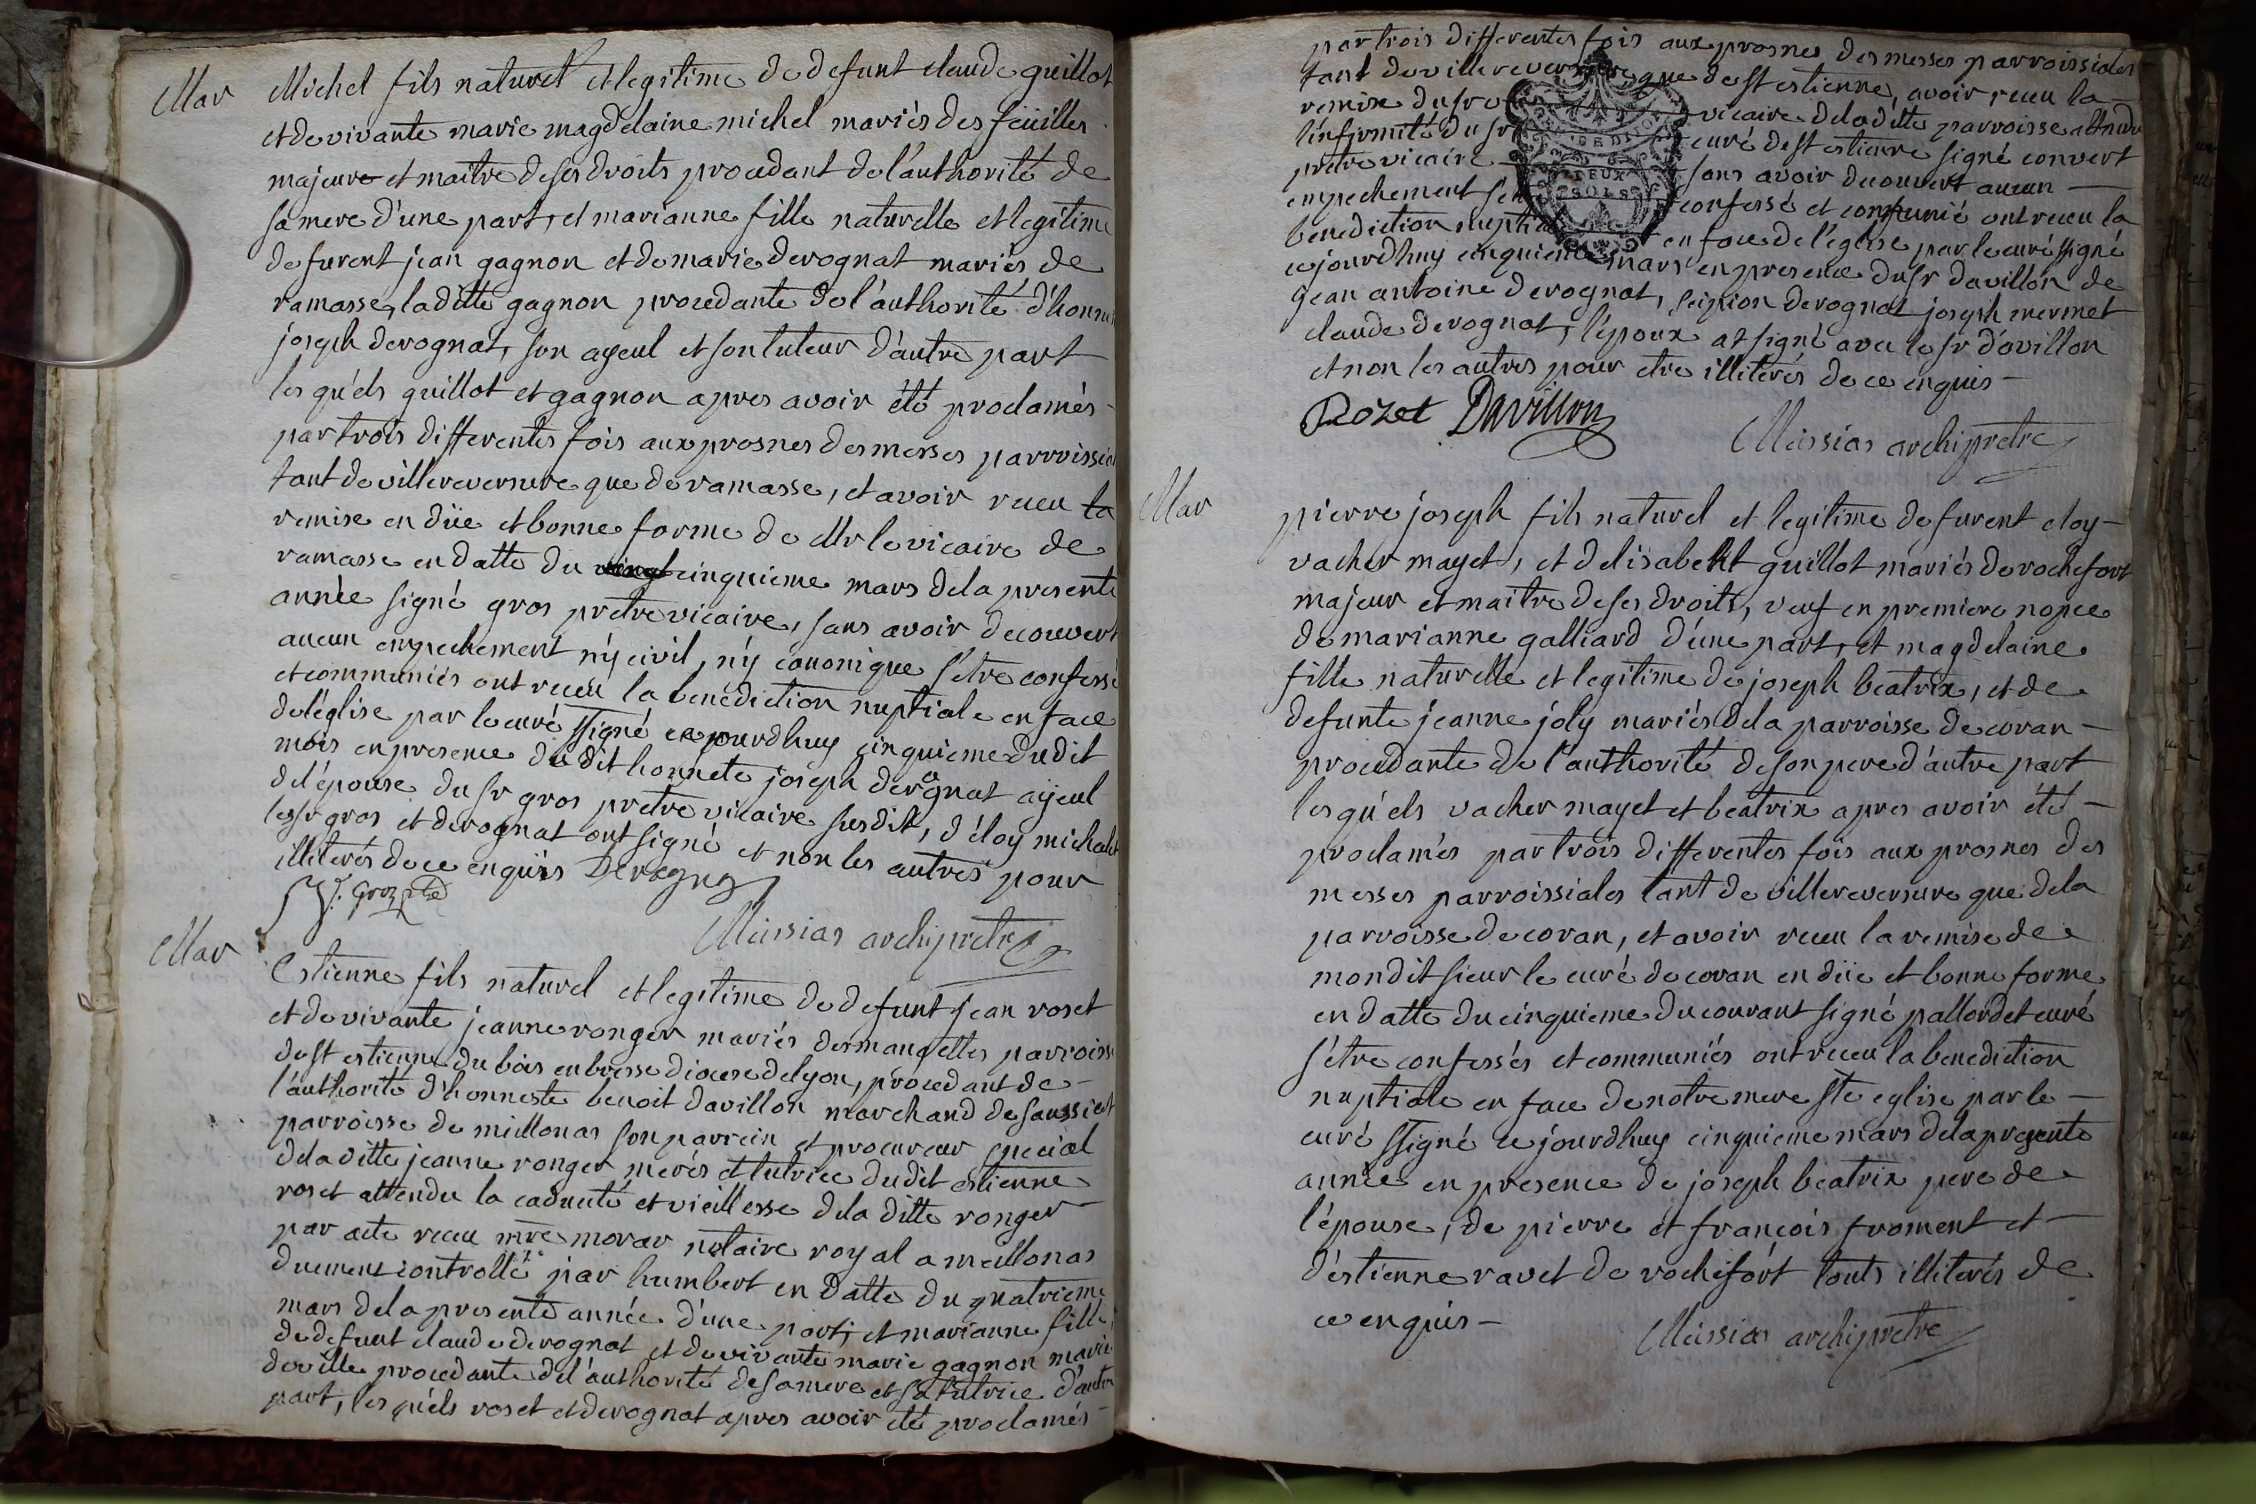 Mar
Michel fils naturel et legitime de defunt claude guillot
et de vivante marie magdelaine michel mariés des feüilles
majeure et maitre de ses droits procedant de l'authorité de
sa mere d'une part, et marianne fille naturelle et legitime
de furent jean gagnon et de marie derognat mariés de
ramasse, la ditte gagnon procedante de l'authorité d'honn
joseph derognat, son ayeul et son tuteur d'autre part
les quéls guillot et gagnon apres avoir été proclamés
par trois differentes fois aux prosnes des messes parroissi
tant de villereversure que de ramasse, et avoir receu la
remise en düe et bonne forme de Mr le vicaire de
ramasse en datte du cinquieme mars de la presente
année signé gros prêtre vicaire, sans avoir decouvert
aucun empechement n'y civil, n'y canonique s'être confessé
et communiés ont receu la benediction nuptiale en face
de l'église par le curé ssigné ce jourdhuy cinquieme du dit
mois en presence du dit honnete joseph derognat ayeul
de l'épouse du sr gros pretre vicaire susdit, d'éloy michalet
les sr gros et derognat ont signé et non les autres pour
illiterés de ce enquis Derognat
J. Groz ptre
Meissias archipretre
Mar
Estienne fils naturel et legitime de defunt jean roset
et de vivante jeanne ronger mariés des mangettes parroisse
de st estienne du bois en bresse diocese de lyon, procedant de
l'authorité d'honneste benoit davillon marchand de saussiat
parroisse de meillonas son parrein et procureur special
de la ditte jeanne ronger merés et tutrice du dit estienne
roset attendu la caducité et vieillesse de la ditte ronger
par acte receu mre morar notaire royal a meillonas
duement controllé par humbert en datte du quatrieme
mars de la presente année d'une part, et marianne fille
de defunt claude derognat et de vivante marie gagnon mariés
de ville procedante de l'authorité de sa mere et sa tutrice d'autre
part, les quéls roset et derognat apres avoir été proclamés
par trois differentes fois aux prosnes des messes parroissiales
tant de villereversure que de st estienne, avoir receu la
remise du sr vicaire de la ditte parroisse attendu
l'infirmité du sr curé de st estienne signé convert
prêtre vicaire sans avoir decouvert aucun
empechement confessé et communié ont receu la
benediction nuptiale en face de l'église par le curé ssigné
ce jourdhuy cinquieme mars en presence du sr davillon de
jean antoine derognat, scipion derognat joseph mermet
claude derognat, l'époux at signé avec le sr d'avillon
et non les autres pour etre illiterés de ce enquis
Rozet Davillon
Meissias archipretre
Mar
pierre joseph fils naturel et legitime de furent eloy
vacher mayet, et d'elisabeht guillot mariés de rochefort
majeur et maitre de ses droits, veuf en premiere nopce
de marianne galliard d'une part, et magdelaine
fille naturelle et legitime de joseph beatrix, et de
defunte jeanne joly mariés de la parroisse de coran
procedante de l'authorité de son pere d'autre part
les quéls vacher mayet et beatrix apres avoir été
proclamés par trois differentes fois aux prosnes des
messes parroissiales tant de villereversure que de la
parroisse de coran, et avoir receu la remise de
mondit sieur le curé de coran en düe et bonne forme
en datte du cinquieme du courant signé pallordet curé
s'être confessés et communiés ont receu la benediction
nuptiale en face de notre mere ste eglise par le
curé ssigné ce jourdhuy cinquieme mars de la presente
année en presence de joseph beatrix pere de
l'épouse, de pierre et françois froment et
d'estienne ravet de rochefort touts illiterés de
ce enquis
Meissias archipretre